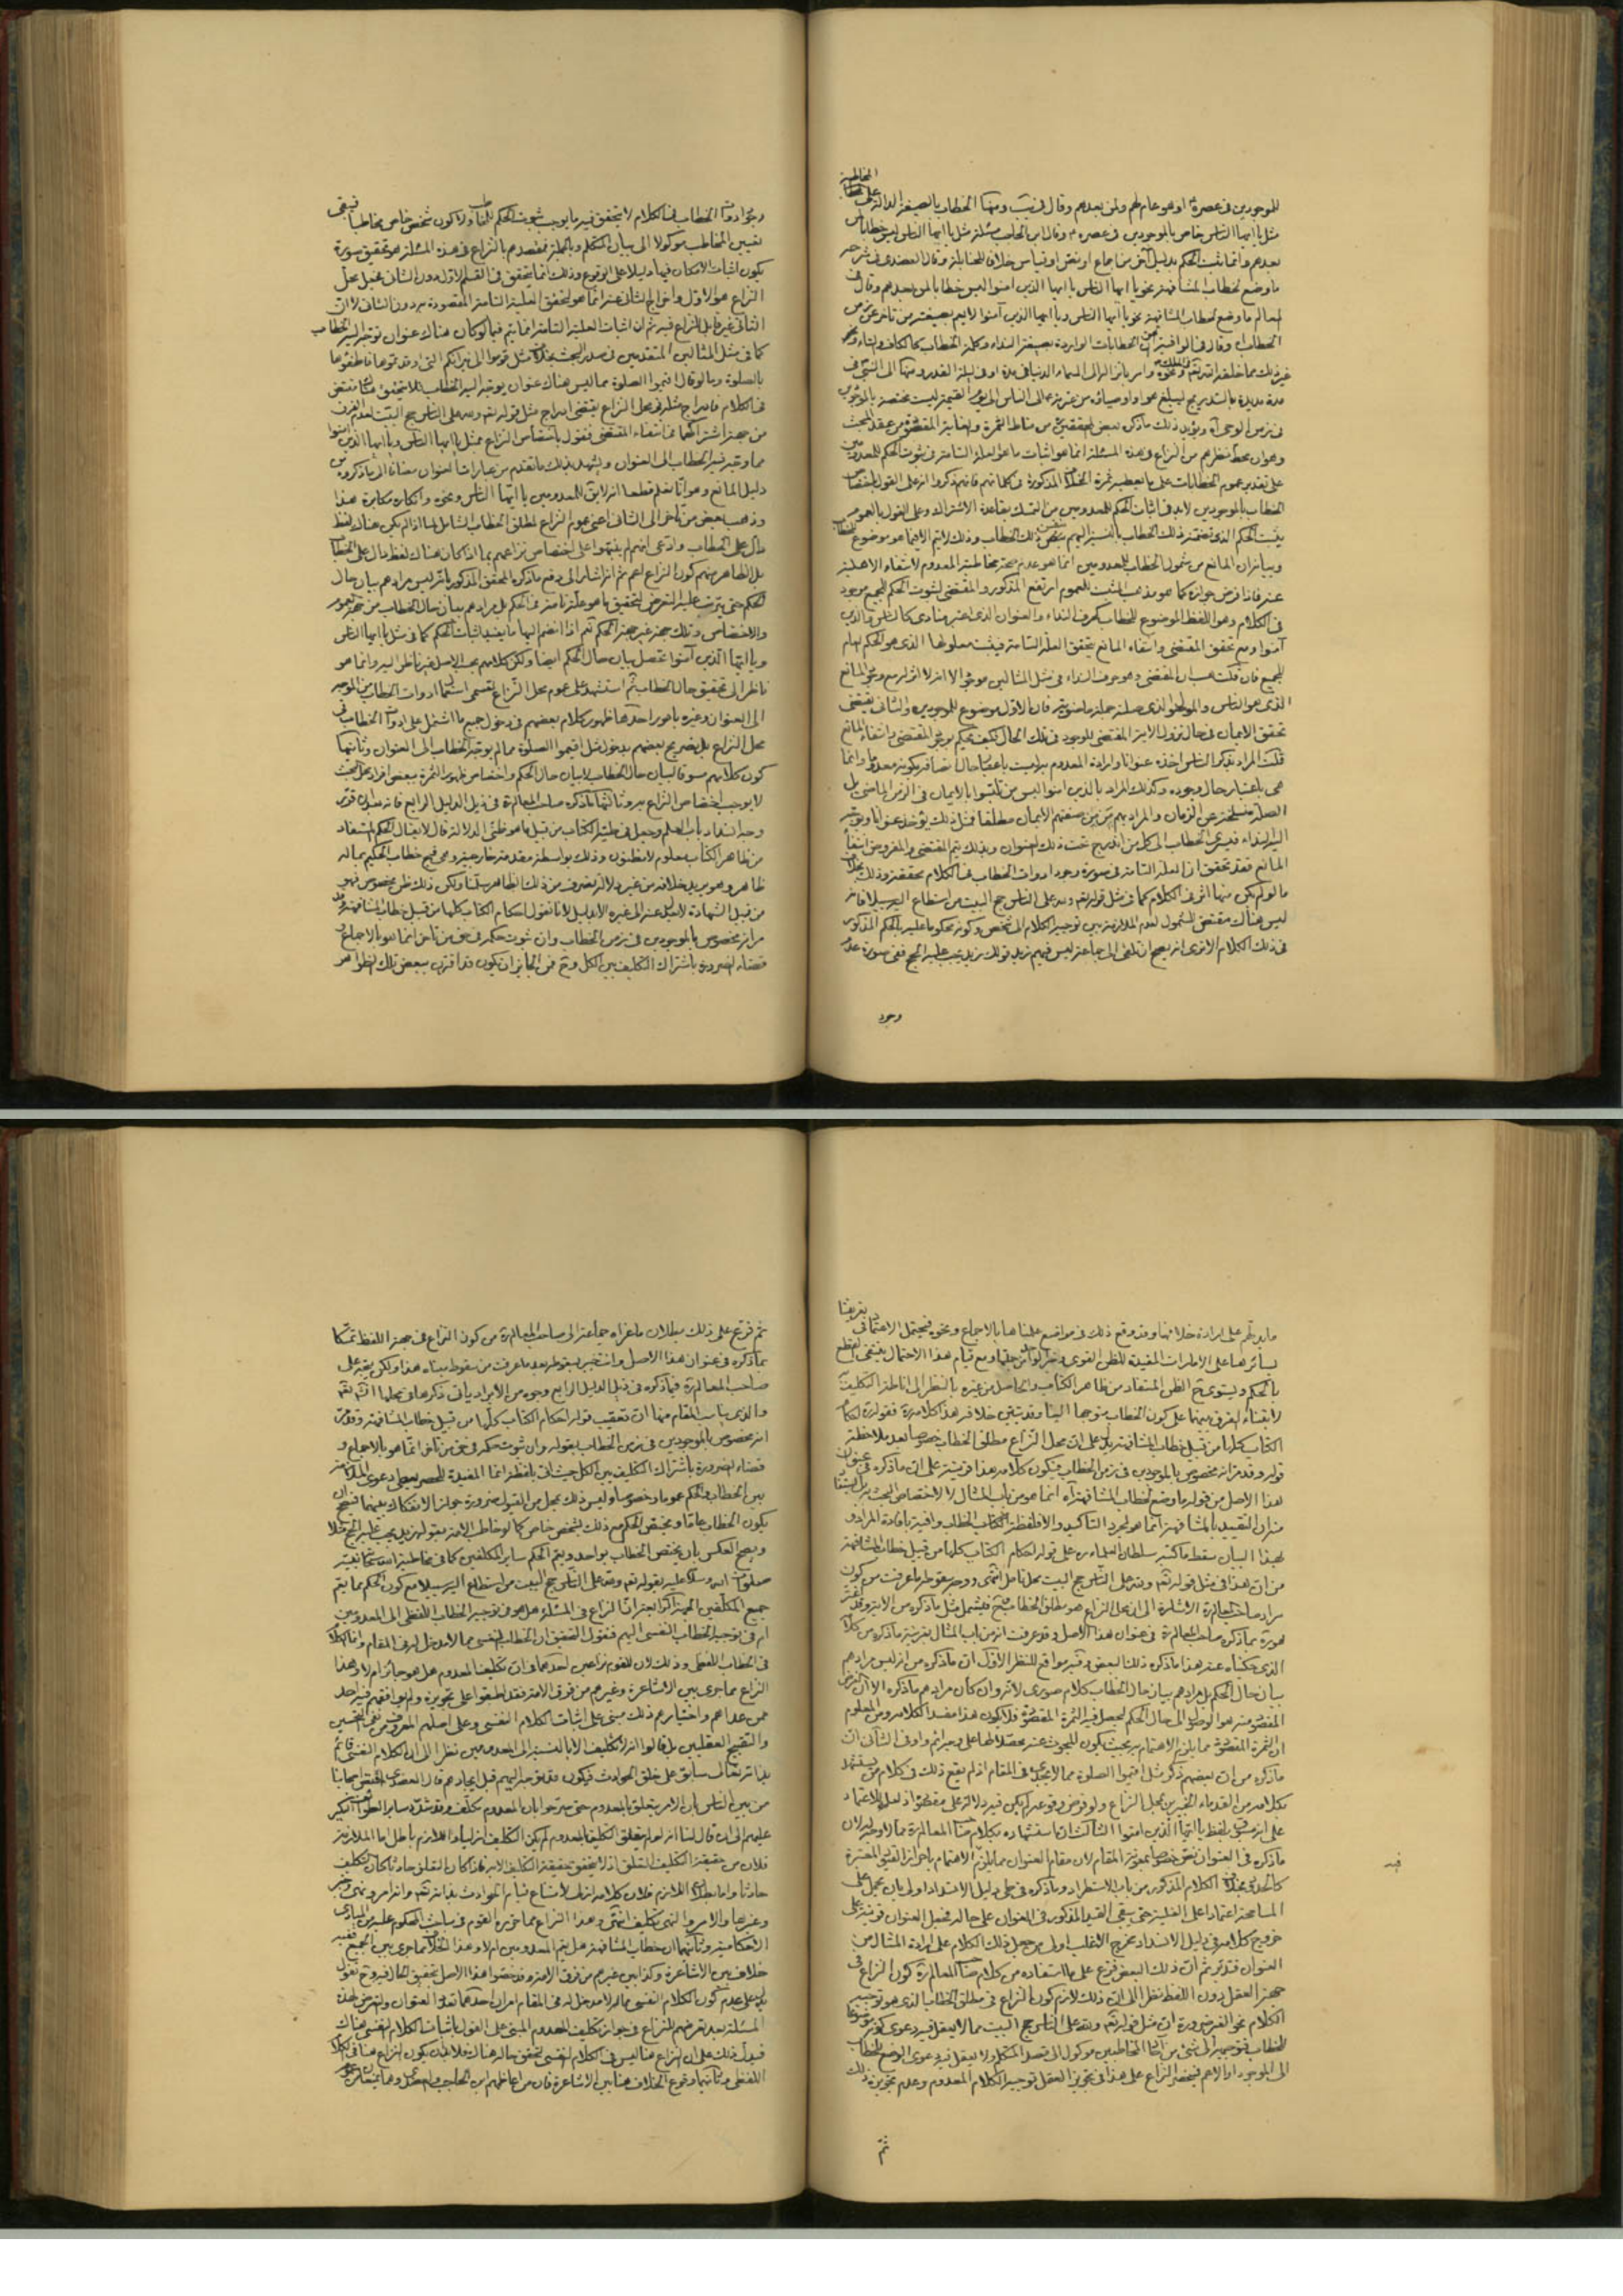 للموجودين في عصره او هو عام لهم ولمن بعدهم وقال في ومنها الخطاب بالصيغة الدالة على المخاطبة
مثل يا ايها الناس خاص بالموجودين في عصره وقال ابن الحاجب مسئلة مثل يا ايها الناس ليس خطابا لمن
بعدهم وانما ثبت الحكم بدليل آخر من اجماع او نص او قياس خلافا للحنابلة وقال العضدي في شرحه
ما وضع لخطاب المشافهة نحو يا ايها الناس يا ايها الذين امنوا ليس خطابا لمن بعدهم وقال في
المعالم ما وضع لخطاب المشافهة نحو يا ايها الناس ويا ايها الذين آمنوا لا يعم بصيغته من تاخر عن زمن
الخطاب وقال في الوافية الخطابات الواردة بصيغة النداء وكلمة الخطاب كالكاف والتاء ونحو
مدة مديدة بالتدريج ليبلغ هو او اوصياؤه من عترته الى الناس الى يوم القيمة ليست مختصة بالموجودين
في زمن الوحي اه ويؤيد ذلك ما ذكره بعض المحققين من مناط الثمرة والغاية المقصودة من عقد المبحث
وهو ان محط نظرهم من النزاع في هذه المسئلة انما هو اثبات ما هو العلة التامة في ثبوت الحكم للمعدومين
على تقدير عموم الخطابات على ما يعطيه ثمرة الخلاف المذكورة في كلماتهم فانهم ذكروا انه على القول باختصاص
الخطاب بالموجودين لا بد في اثبات الحكم للمعدومين من التمسك بقاعدة الاشتراك وعلى القول بالعموم
يثبت الحكم الذي تضمنه ذلك الخطاب بالنسبة اليهم بنفس ذلك الخطاب وذلك لا يتم الا فيما هو موضوع للخطاب
وبيانه ان المانع من شمول الخطاب للمعدومين انما هو عدم صحة مخاطبة المعدوم لانتفاء الاهلية
عنه فاذا فرض جوازه كما هو مذهب المثبت للعموم ارتفع المذكور والمقتضي لثبوت الحكم للجميع موجود
في الكلام وهو اللفظ الموضوع للخطاب كحرف النداء والعنوان الذي اعتبر منادى كالناس والذين
آمنوا ومع تحقق المقتضي وانتفاء المانع يتحقق العلة التامة فيثبت معلولها الذي هو الحكم العام
للجميع فان قلت هب ان المقتضي وهو حرف النداء في مثل المثالين موجود الا انه لا اثر له مع وجود المانع
الذي هو الناس والموصول الذي صلته جملة ماضوية فان الاول موضوع للموجودين والثاني يقتضي
تحقق الايمان في حال نزول الاية المقتضي للوجود في تلك الحال فكيف يحكم بوجود المقتضي وانتفاء المانع
قلت المراد بذكر الناس اخذه عنوانا وارادة المعدوم به ليست باعتبار حال اتصافه بكونه معدوما وانما
هي باعتبار حال وجوده وكذلك المراد بالذين امنوا ليس من تلبسوا بالايمان في الزمن الماضي بل
الصلة منسلخة عن الزمان والمراد بهم من صفتهم الايمان مطلقا فمثل ذلك يؤخذ عنوانا ويوجه
اليه النداء فيسري الخطاب الى كل من اندرج تحت ذلك العنوان وبذلك يتم المقتضي والمفروض انتفاء
المانع فقد تحقق ان العلة التامة في صورة وجود ادوات الخطاب في الكلام محققة وذلك بخلاف
ما لو لم يكن منها اثر في الكلام كما في مثل قوله تعالى ولله على الناس حج البيت من استطاع اليه سبيلا فانه
ليس هناك مقتض للشمول لعدم الملازمة بين توجيه الكلام الى شخص وكونه محكوما عليه بالحكم المذكور
في ذلك الكلام الا ترى انه يصح ان تلقى الى جماعة ليس فيهم زيد قولك زيد يجب عليه الحج ففي صورة عدم
وجود
وجود ادوات الخطاب في الكلام لا يتحقق فيه ما يوجب ثبوت الحكم للغائب ولا كون شخص خاص مخاطبا فيبقى
تعيين المخاطب موكولا الى بيان المتكلم وبالجملة فقصدهم بالنزاع في هذه المسئلة هو تحقيق صورة
يكون اثبات الامكان فيها دليلا على الوقوع وذلك انما يتحقق في القسم الاول دون الثاني فجعل محل
النزاع هو الاول واخراج الثاني عنه انما هو لتحقق العلية التامة المقصودة به دون الثاني لا ان
الثاني غير قابل للنزاع فيه ثم ان اثبات العلية التامة انما يتم فيما لو كان هناك عنوان توجه اليه الخطاب
كما في مثل المثالين المتقدمين في صدر البحث بخلاف مثل قوموا الى نيرانكم التي اوقدتموها فاطفؤها
بالصلوة وما لو قال اقيموا الصلوة مما ليس هناك عنوان يوجه اليه الخطاب فلا يتحقق هناك مقتض
في الكلام فادراج مثله في محل النزاع يقتضي ادراج مثل قوله تعالى ولله على الناس حج البيت لعدم الفرق
من جهة اشتراكهما في انتفاء المقتضي فنقول باختصاص النزاع بمثل يا ايها الناس ويا ايها الذين آمنوا
مما وجه فيه الخطاب الى العنوان ويشهد بذلك ما تقدم من عبارات العنوان مضافا الى ما ذكروه من
دليل المانع وهو انا نعلم قطعا انه لا يقال للمعدومين يا ايها الناس ونحوه وانكاره مكابرة هذا
وذهب بعض من تاخر الى الثاني اعني عموم النزاع لمطلق الخطاب الشامل لما اذا لم يكن هناك لفظ
دال على الخطاب وادعى انهم لم ينبهوا على اختصاص نزاعهم بما اذا كان هناك لفظ دال على الخطاب
بل الظاهر منهم كون النزاع اعم ثم انه اشار الى دفع ما ذكره المحقق المذكور بانه ليس مرادهم بيان حال
الحكم حتى يترتب عليه التعرض لتحقيق ما هو علة تامة في الحكم بل مرادهم بيان حال الخطاب من جهة العموم
والاختصاص وتلك جهة غير جهة الحكم نعم اذا انضم اليها ما يفيد اثبات الحكم كما في مثل يا ايها الناس
ويا ايها الذين آمنوا تحصل بيان حال الحكم ايضا ولكن كلامهم بحسب الاصل غير ناظر اليه وانما هو
ناظر الى تحقيق حال الخطاب ثم استشهد على عموم محل النزاع لقسمي استعمال ادوات الخطاب من الموجه
الى العنوان وغيره بامور احدها ظهور كلام بعضهم في دخول جميع ما اشتمل على ادوات الخطاب في
محل النزاع بل تصريح بعضهم بدخول مثل اقيموا الصلوة مما لم يوجه الخطاب الى العنوان وثانيها
كون كلامهم مسوقا لبيان حال الخطاب لا بيان حال الحكم واختصاص ظهور الثمرة ببعض افراد محل البحث
لا يوجب اختصاص النزاع به وثالثها ما ذكره صاحب المعالم ره في ذيل الدليل الرابع فانه بعد ان قرر
وجه انسداد باب العلم وجعل في طيه الكتاب من قبيل ما هو ظني الدلالة قال لا يقال الحكم المستفاد
من ظاهر الكتاب معلوم لا مظنون وذلك بواسطة مقدمة خارجية وهي قبح خطاب الحكيم بما له
ظاهر وهو يريد خلافه من غير دلالة تصرف عن ذلك الظاهر سلمنا ولكن ذلك ظن مخصوص فهو
من قبيل الشهادة لا يعدل عنه الى غيره الا بدليل لانا نقول احكام الكتاب كلها من قبيل خطاب المشافهة وقد
مر انه مخصوص بالموجودين في زمن الخطاب وان ثبوت حكمه في حق من تاخر انما هو بالاجماع و
قضاء الضرورة باشتراك التكليف بين الكل وح فمن الجائز ان يكون قد اقترن ببعض تلك الظواهر
ما يدلهم على ارادة خلافها وقد وقع ذلك في مواضع علمناها بالاجماع ونحوه فيحتمل الاعتماد في تعريفنا
بسائرها على الامارات المفيدة للظن القوي وخبر الواحد من جملتها ومع قيام هذا الاحتمال ينتفي القطع
بالحكم ويستوي ح الظن المستفاد من ظاهر الكتاب والحاصل من غيره بالنظر الى اناطة التكليف
لابتناء الفرق بينهما على كون الخطاب متوجها الينا وقد تبين خلافه هذا كلامه ره فقوله احكام
الكتاب كلها من قبيل خطاب المشافهة يدل على ان محل النزاع مطلق الخطاب خصوصا بعد ملاحظة
قوله وقد مر انه مخصوص بالموجودين في زمن الخطاب فيكون كلامه هذا قرينة على ان ما ذكره في عنوان
هذا الاصل من قوله ما وضع لخطاب المشافهة آه انما هو من باب المثال لا لاختصاص البحث به
بهذا البيان سقط ما كتبه سلطان العلماء ره على قوله احكام الكتاب كلها من قبيل خطاب المشافهة
من ان هذا في مثل قوله تعالى ولله على الناس حج البيت محل تامل انتهى ووجه سقوطه ما عرفت من كون
مراد صاحب المعالم ره الاشارة الى ان محل النزاع هو مطلق الخطاب ح فيشمل مثل ما ذكره من الاية
هو ره بما ذكره صاحب المعالم ره في عنوان هذا الاصل وقد عرفت انه من باب المثال بقرينة ما ذكره من كلامه
الذي حكيناه عنه هذا ما ذكره ذلك البعض وفيه مواقع للنظر الاول ان ما ذكره من انه ليس مرادهم
بيان حال الحكم بل مرادهم بيان حال الخطاب كلام صوري لانه وان كان مرادهم ما ذكره الا ان الغرض
المقصود منه هو الوصول الى حال الحكم ليحصل فيه الثمرة المقصودة فلا يكون هذا مفسدا لكلامه ومن المعلوم
ما ذكره من ان بعضهم ذكر مثل اقيموا الصلوة مما لا يجدي في المقام اذ لم يقع ذلك في كلام من يستشهد
بكلامه من القدماء الخبيرين بمحل النزاع ولو فرض وقوعه لم يكن فيه دلالة على مقصوده
ما ذكره في العنوان نص خصوصا بمعونة المقام لان مقام العنوان مما يلزم الاهتمام باحراز القيود المعتبرة
كالحدود بخلاف الكلام المذكور من باب الاستطراد وما ذكره في طي دليل الانسداد اولى بان يحمل على
المسامحة اعتمادا على الغلبة حتى يبقى القيد المذكور في العنوان على حاله فجعل العنوان قرينة على
خروج كلامه في دليل الانسداد مخرج الاغلب اولى من جعل ذلك الكلام على ارادة المثال من
العنوان فتدبر ثم ان ذلك البعض فرع على ما استفاده من كلام صاحب المعالم ره كون النزاع في
جهة العقل دون اللفظ نظرا الى ان ذلك لازم كون النزاع في مطلق الخطاب الذي هو توجيه
الكلام نحو الغير ضرورة ان مثل قوله تعالى ولله على الناس حج البيت مما لا يعقل فيه دعوى كونه موضوعا
للخطاب فتوجيهه الى شيء من آحاد المخاطبين موكول الى قصد المتكلم ولا يعقل فيه دعوى الوضع للخطاب
الى الموجود او الاعم فينحصر النزاع على هذا في تجويز العقل توجيه الكلام المعدوم وعدم تجويزه ذلك
ثم
فيه
ثم فرع على ذلك بطلان ما عزاه جماعة الى صاحب المعالم ره من كون النزاع في جهة اللفظ تمسكا
بما ذكره في عنوان هذا الاصل وانت خبير بسقوطه بعد ما عرفت من سقوط مبناه هذا ولكن يتجه على
صاحب المعالم ره فيما ذكره في ذيل الدليل الرابع وجوه من الايراد ياتي ذكرها في محلها انش تعالى
والذي يناسب المقام منها ان تعقيب قوله احكام الكتاب كلها من قبيل خطاب المشافهة وقد مر
انه مخصوص بالموجودين في زمن الخطاب بقوله وان ثبوت حكمه في حق من تاخر انما هو بالاجماع و
قضاء الضرورة باشتراك التكليف بين الكل حيث اتى بلفظة انما المفيدة للحصر يعطي دعوى الملازمة
بين الخطاب والحكم عموما وخصوصا وليس ذلك بمحل من القبول ضرورة جواز الانفكاك بينهما فيصح ان
يكون الخطاب عاما ويختص الحكم مع ذلك بشخص خاص كما لو خاطب الامة بقوله زيد يجب عليه الحج مثلا
ويصح العكس بان يختص الخطاب بواحد ويعم الحكم ساير المكلفين كما في مخاطبة الله سبحانه نبيه
صلوات الله وسلامه عليه بقوله تعالى ولله على الناس حج البيت من استطاع اليه سبيلا مع كون الحكم مما يعم
جميع المكلفين الجهة الرابعة ان النزاع في المسئلة هل هو في توجيه الخطاب اللفظي الى المعدومين
ام في توجيه الخطاب النفسي اليهم فنقول التحقيق ان الخطاب النفسي مما لا مدخل له في المقام وانما الكلام
في الخطاب اللفظي وذلك لان للقوم نزاعين احدهما في ان تكليف المعدوم هل هو جائز ام لا وهذا
النزاع مما جرى بين الاشاعرة وغيرهم من فرق الامة فقد اطبقوا على تجويزه ولم يوافقهم فيه احد
ممن عداهم واختيارهم ذلك مبني على اثبات الكلام النفسي وعلى اصلهم المعروف من نفي التحسين
والتقبيح العقليين بل قالوا انه لا تكليف الا بالنسبة الى المعدومين نظرا الى ان الكلام النفسي قائم
بذاته تعالى سابق على خلق الحوادث فيكون قد توجه اليهم قبل ايجادهم قال العضدي اختص اصحابنا
من بين الناس بان الامر يتعلق بالمعدوم حتى صرحوا بان المعدوم مكلف وقد شدد ساير الطوائف النكير
عليهم الى ان قال لنا انه لو لم يتعلق التكليف بالمعدوم لم يكن التكليف ازليا واللازم باطل اما الملازمة
فلان من حقيقة التكليف التعلق اذ لا يتحقق حقيقة التكليف الا به فاذا كان التعلق حادثا كان التكليف
حادثا واما بطلان اللازم فلان كلامه ازلي لامتناع قيام الحوادث بذاته تعالى وانه امر ونهي وخبر
وغيرها والامر والنهي تكليف انتهى وهذا النزاع مما حرره القوم في مباحث المحكوم عليه من المبادي
الاحكامية وثانيهما ان خطاب المشافهة هل يعم المعدومين ام لا وهذا الخلاف مما جرى بين الجميع ففيه
خلاف بين الاشاعرة وكذا بين غيرهم من فرق الامة وقد خصوا هذا الاصل بتحقيق الحال فيه وح نقول
يدل على عدم كون الكلام النفسي مما له مدخل في المقام امران احدهما تعدد العنوان وتعرضهم لهذه
المسئلة بعد تعرضهم للنزاع في جواز تكليف المعدوم المبني على القول باثبات الكلام النفسي هناك
فيدل ذلك على ان النزاع هنا ليس في الكلام النفسي لتحقق حاله هناك فلا بد ان يكون النزاع هنا في الكلام
اللفظي وثانيهما وقوع الخلاف هنا بين الاشاعرة فان من اعاظمهم ابن الحاجب